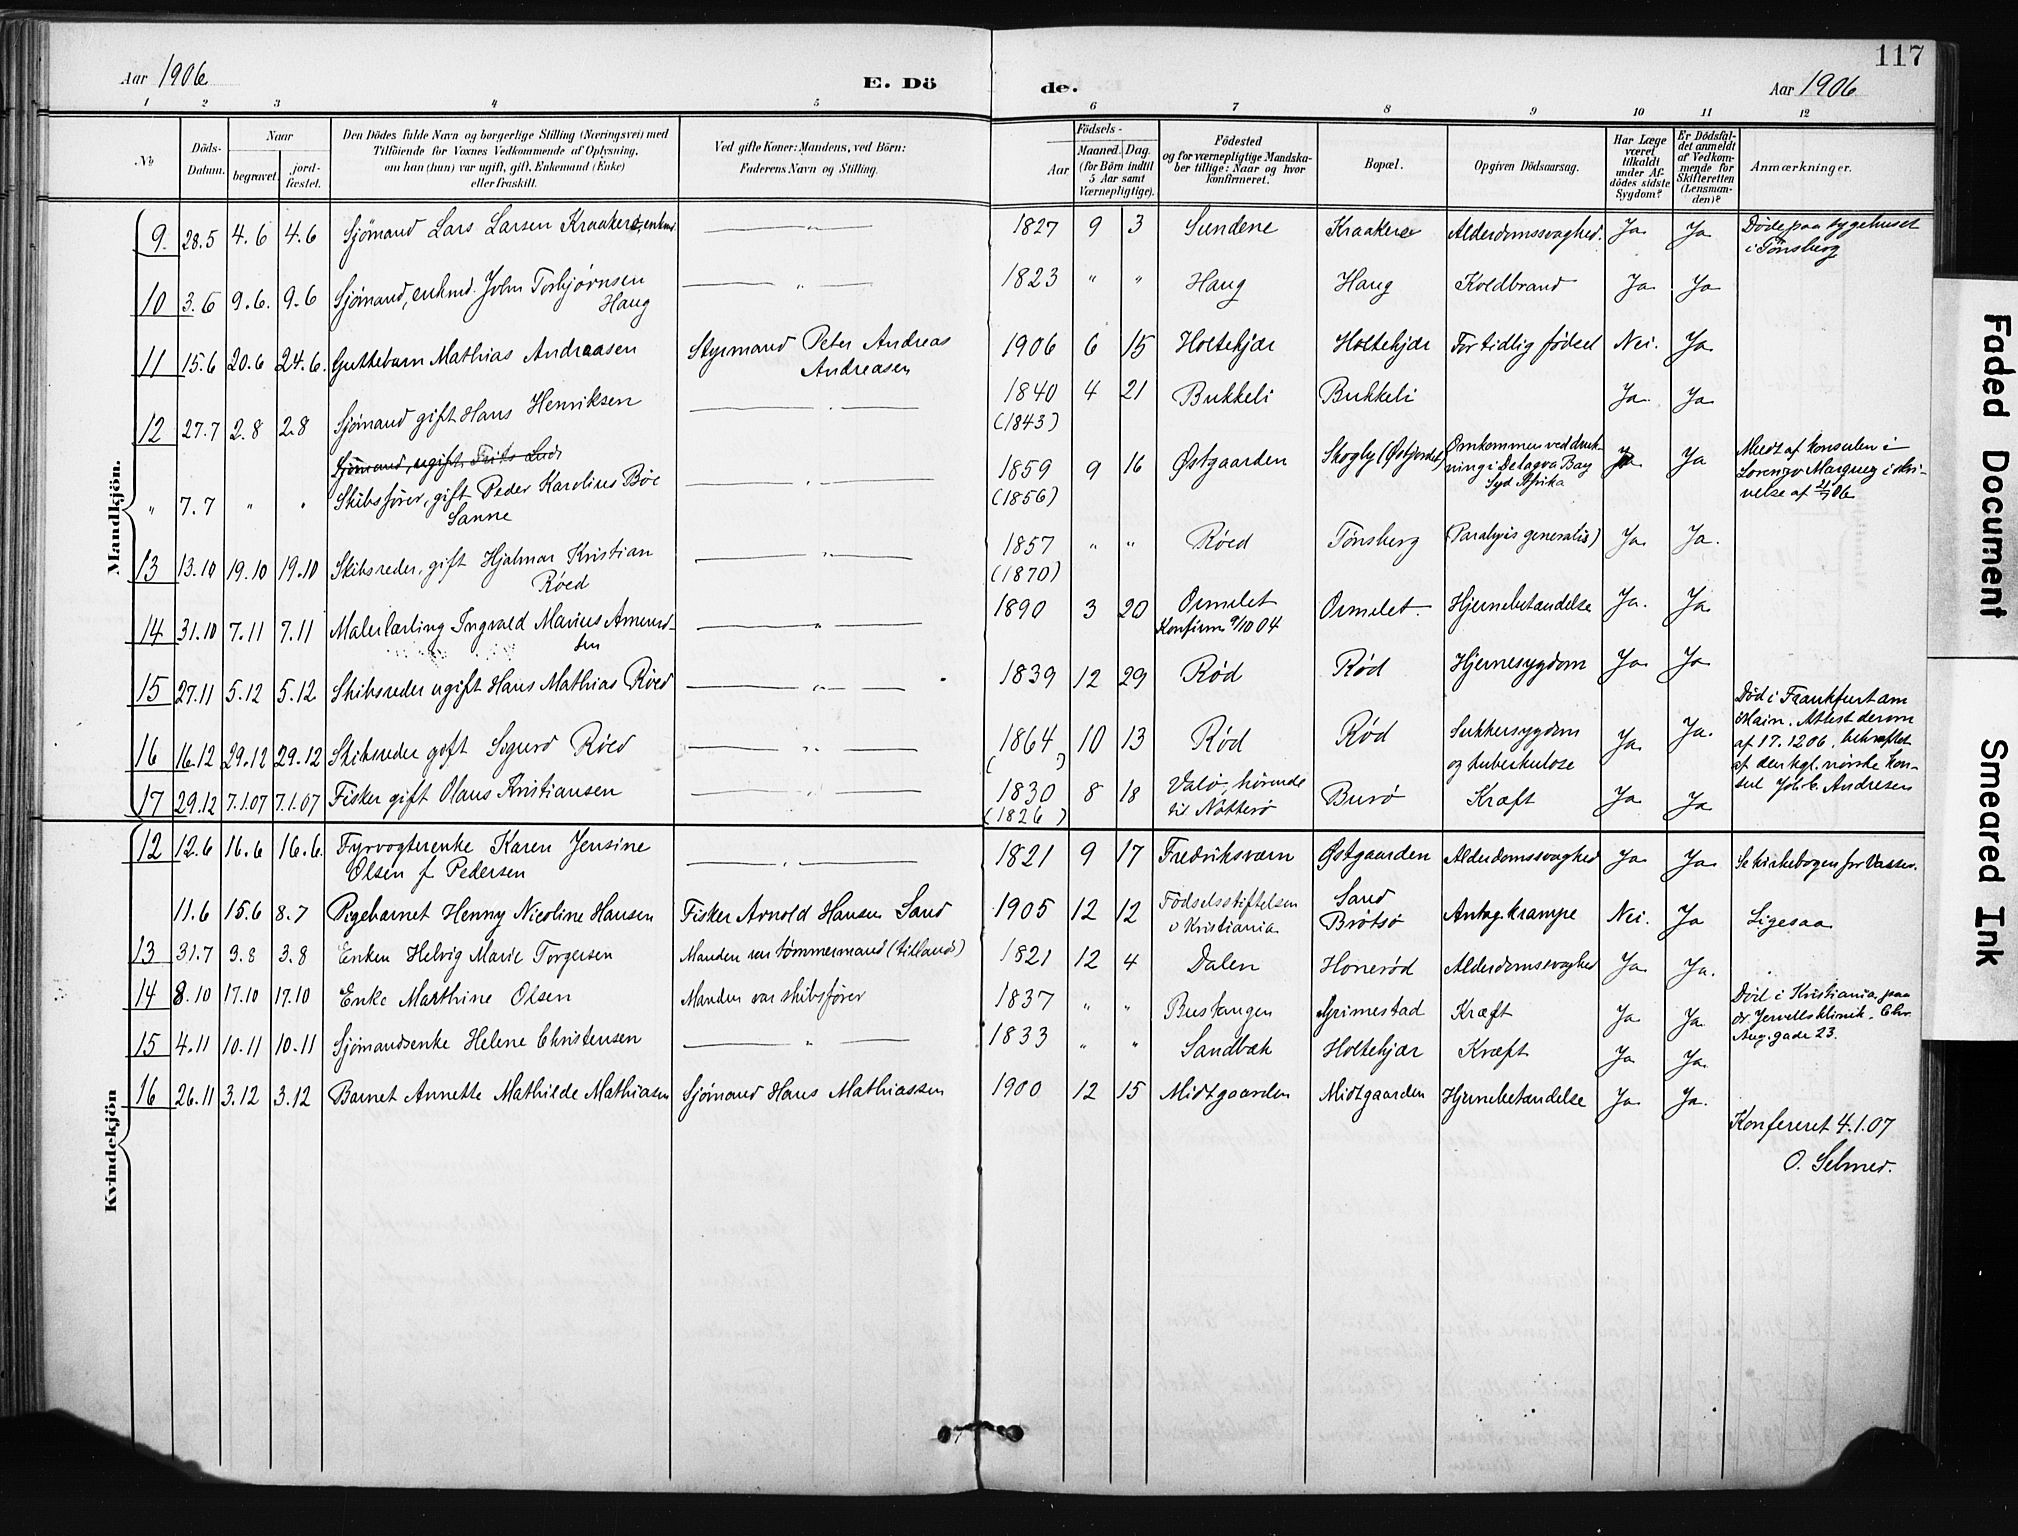 117
Aar 1906 E. Dö de. Aar 1906
1 2 3 4 5 6 7 8 9 10 11 12
No
Döds-Datum.
Naar
begravet.
jord-fæstet.
Den Dödes fulde Navn og borgerlige Stilling (Næringsvei) med
Tilföiende for Voxnes Vedkommende af Oplysning,
om han (hun) var ugift, gift, Enkemand (Enke)
eller fraskilt.
Ved gifte Koner: Mandens, ved Börn:
Faderens Navn og Stilling.
Födsels-
Aar
Maaned. Dag.
(for Börn indtil
5 Aar samt
Værnepligtige).
Födested
og for værnepligtige Mandska-
ber tillige: Naar og hvor
konfirmeret.
Bopæl.
Opgiven Dödsaarsag.
Har Læge
været
tilkaldt
under Af-
dödes sidste
Sygdom?
Er Dödsfal-
det anmeldt
af Vedkom-
mende for
Skifteretten
(Lensman-
den)?
Anmærkninger.
Mandkjön.
9. 28.5 4.6 4.6 Sjömand Lars Larsen Kraakere, enkmd. " 1827 9 3 Sundene Kraakere Alderdomssvaghed. Ja Ja Döde paa sygehuset
i Tönsberg
10 3.6 9.6. 9.6 Sjömand, enkmd. John Torbjørnsen
Haug " 1823 " " Haug Haug Koldbrand Ja Ja
11 15.6 20.6 24.6. Guttebarn Mathias Andreasen Styrmand Peter Andreas
Andreasen 1906 6 15 Holtekjær Holtekjær For tidlig fødsel Nei. Ja
12 27.7 2.8 2.8 Sjömand gift Hans Henriksen " 1840 4 21 Bukkeli Bukkeli Ja Ja
(1843)
Sjömand, ugift, Frits Ludv
" 7.7 " " Skibsfører, gift Peder Karolius Bøe
Sanne " 1859 9 16 Østgaarden Skogly (Østjordet) Omkommen ved druk-
ning i Delagoa Bay
Syd Afrika Ja Ja Meldt af konsulen i
Lorenzo Marquez i skri-
velse af 21/7 06
(1856)
13 13.10 19.10 19.10 Skibsreder, gift Hjalmar Kristian
Røed " 1857 " " Røed Tønsberg (Paralysis generalis) Ja Ja.
(1870)
14 31.10 7.11 7.11 Malerlærling Ingvald Marius Amund-
sen " 1890 3 20 Ormelet
Konfirm 9/10 04 Ormelet Hjernebetændelse Ja. Ja
15 27.11 5.12 5.12 Skibsreder ugift Hans Mathias Röed " 1839 12 29 Rød Rød Hjernesygdom Ja Ja
16 16.12 29.12 29.12 Skibsreder gift Sigurd Röed " 1864 10 13 Rød Rød Sukkersygdom
og tuberkulose Ja Ja. Död i Frankfurt am
Main. Attest derom
af 17.12 06, bekræftet
af den kgl. norske kon-
sul Joh. C. Andresen
17 29.12 7.1.07 7.1.07 Fisker gift Olaus Kristiansen " 1830 8 18 Valö, hörende
til Nøtterø Burø Kræft Ja Ja
(1826)
Kvindekjön
12 12.6 16.6 16.6. Fyrvogterenke Karen Jensine
Olsen f. Pedersen " 1821 9 17 Fredriksværn Østgaarden Alderdomssvaghed Ja Ja Se kirkebogen for Vasser.
11.6 15.6 8.7 Pigebarnet Henny Nicoline Hansen Fisker Arnold Hansen Sand 1905 12 12 Födselsstiftelsen
i Kristiania Sand
Brøtsø Krampe Nei. Ja Ligesaa
13 31.7 3.8 3.8 Enken Helvig Marie Torgersen Manden var tømmermand (tillands) 1821 12 4 Dalen Honerød Alderdomssvaghed Ja Ja.
14 8.10 17.10 17.10 Enke Marthine Olsen Manden var skibsfører 1837 " " Bustangen Grimestad Kræft Ja Ja Död i Kristiania paa
dr. Jervells klinik. Chr.
Aug. gade 23.
15 4.11 10.11 10.11 Sjömandsenke Helene Christensen " 1833 " " Sandbæk Holtekjær Kræft Ja Ja.
16 26.11 3.12 3.12 Barnet Annette Mathilde Mathiasen Sjömand Hans Mathiassen 1900 12 15 Midtgaarden Midtgaarden Hjernebetændelse Ja Ja.
Konfereret 4.1.07
O. Selmer.
Faded Document
Smeared Ink